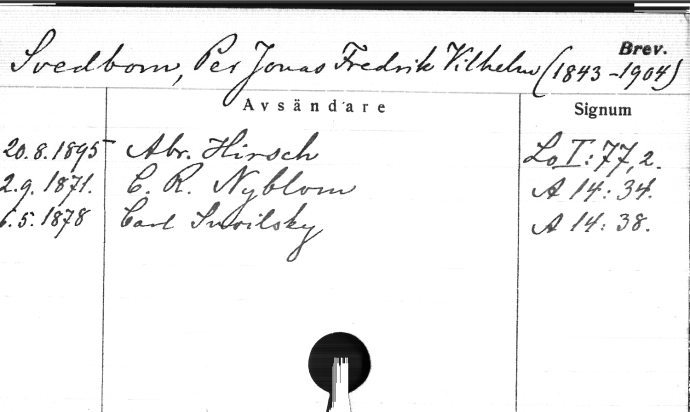 Brev.
Svedbom, Per Jonas Fredrik Vilhelm (1843-1904)
Avsändare Signum
20.8.1895 Abr. Hirsch Lo I:77,2.
2.9.1871. C. R. Nyblom A 14:34.
6.5.1878 Carl Snoilsky A 14:38.